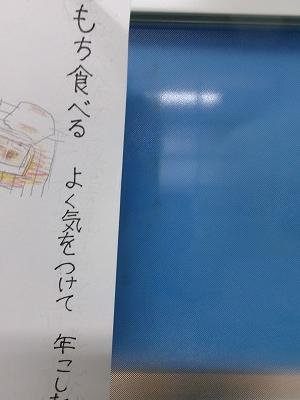 もち食べる よく気をつけて 年こし